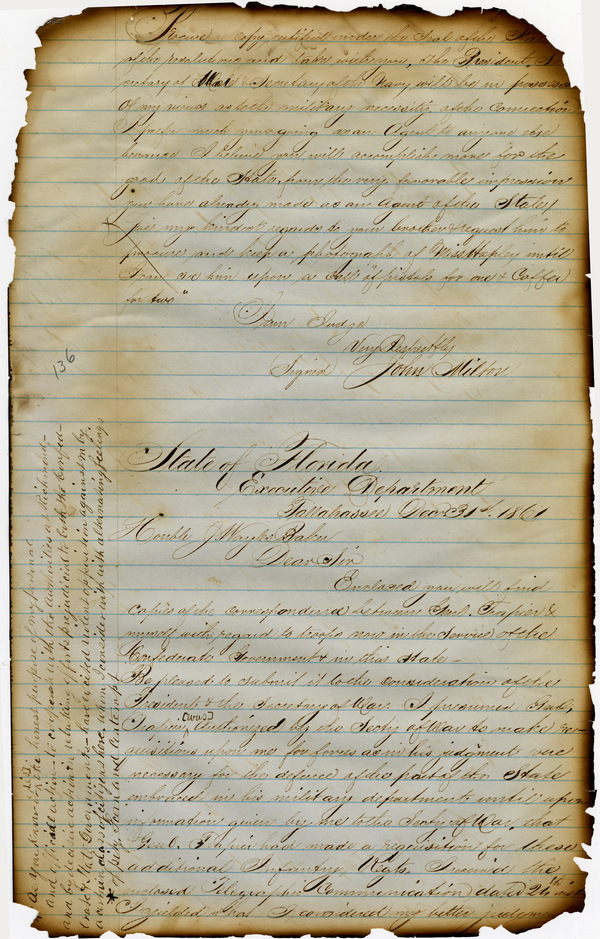 Procure a copy certified under the Seal of the State
of the resolutions and take with you, the President, Se
cretary of War & Secretary of the Navy will be in possession
of my views as to the military necessity of the connection
I prefer much your going as an Agent to any one else
because I believe you will accomplish more for the
good of the State from the very favorable impression
you have already made as an Agent of the State
give my kindest regards to your brother & request him to
procure and keep a photograph of Miss Hapley until
I can see him upon a Call "of pistols for one & Coffee
for two"
I am Judge
Very Respectfully
Signed John Milton
136
State of Florida
Executive Department
Tallahassee Decr 31st 1861
Honble J Wayles Baker
Dear Sir
Enclosed you will find
copies of the correspondence between Genl. Trapier &
myself with regard to troops now in the service of the
Confederate Government & in this State—
Be pleased to submit it to the consideration of the
President & the Secretary of War. I presumed Genl.
Trapier [was] authorized by the Secty of War to make re-
quisitions upon me for forces as in his judgment were
necessary for the defence of the part of the State
embraced in his military department until upon
information given by me to the Secty of War, that
Genl. Trapier had made a requisition for these
additional Infantry Regts. I received the
enclosed Telegraphic Communication dated 26th inst
I yielded what I considered my better judgment
As you know the honest purpose of my personal
and official actions to cooperate with the authorities at Richmond,—
and by decisive action in rebuking efforts prejudicial to both the Confed-
erate & State Governments— have excited violent opposition against me by